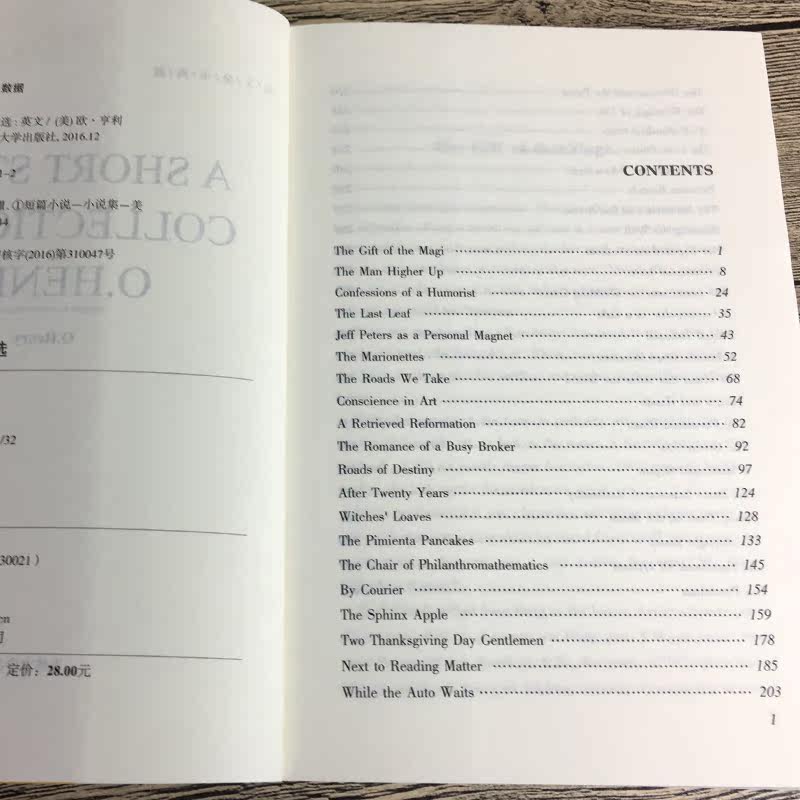 数据
选：英文/（美）欧·亨利
大学出版社，2016.12
①短篇小说－小说集－美
核字(2016)第310047号
选
/32
30021）
定价：28.00元
CONTENTS
The Gift of the Magi ········ 1
The Man Higher Up ········ 8
Confessions of a Humorist ········ 24
The Last Leaf ········ 35
Jeff Peters as a Personal Magnet ········ 43
The Marionettes ········ 52
The Roads We Take ········ 68
Conscience in Art ········ 74
A Retrieved Reformation ········ 82
The Romance of a Busy Broker ········ 92
Roads of Destiny ········ 97
After Twenty Years ········ 124
Witches' Loaves ········ 128
The Pimienta Pancakes ········ 133
The Chair of Philanthromathematics ········ 145
By Courier ········ 154
The Sphinx Apple ········ 159
Two Thanksgiving Day Gentlemen ········ 178
Next to Reading Matter ········ 185
While the Auto Waits ········ 203
1